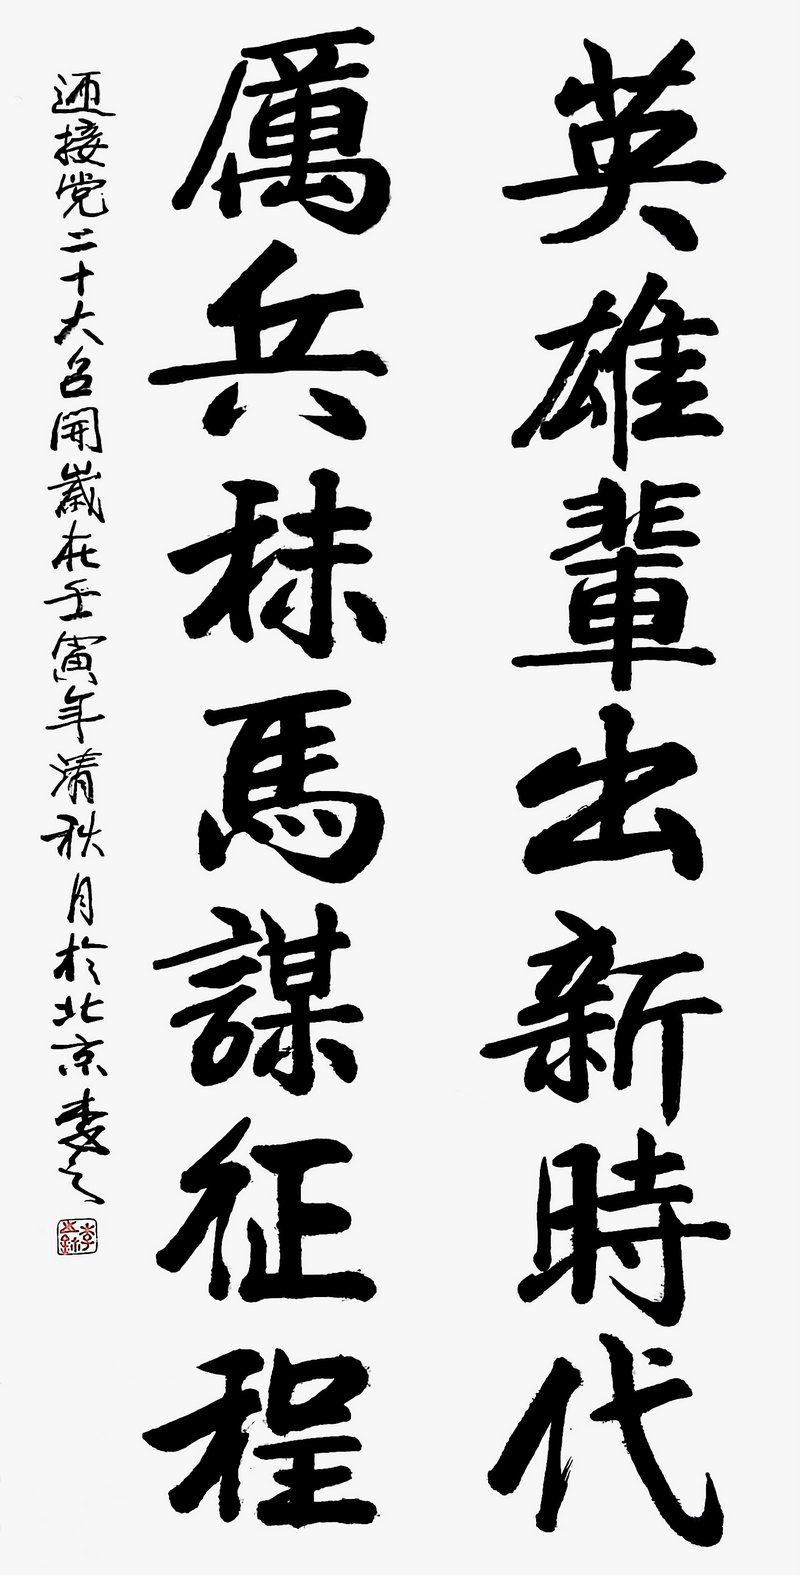 英雄輩出新時代
厲兵秣馬謀征程
迎接党二十大召開歲在壬寅年清秋月於北京